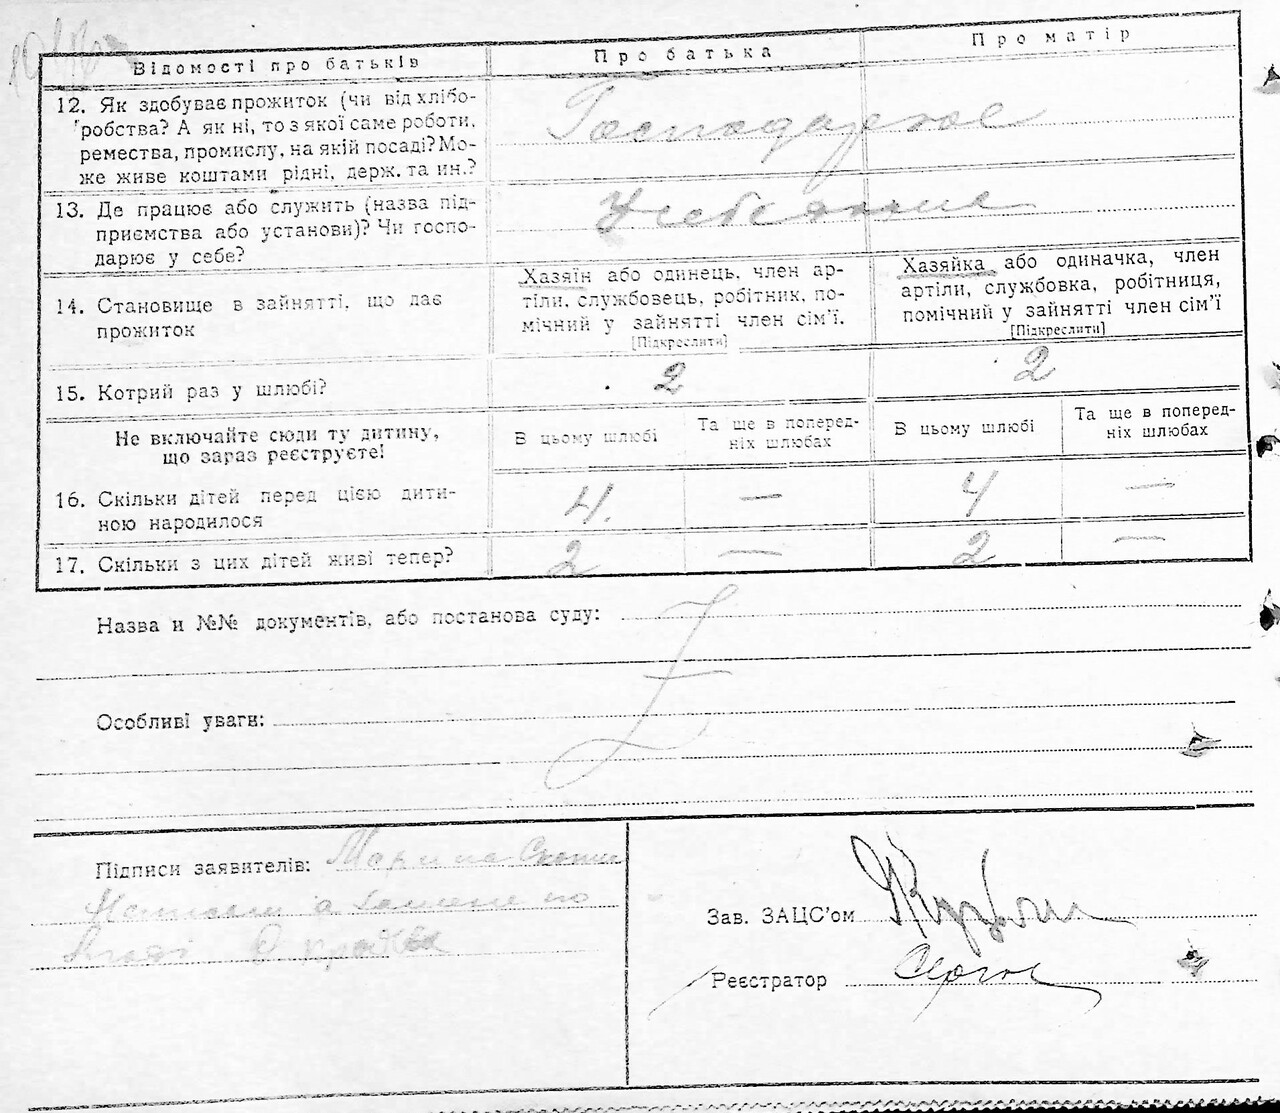 Відомості про батьків
Про батька
Про матір
12. Як здобуває прожиток (чи від хлібо-
робства? А як ні, то з якої саме роботи,
ремества, промислу, на якій посаді? Мо-
же живе коштами рідні, держ. та ин.?
Господартос
13. Де працює або служить (назва під-
приємства або установи)? Чи госпо-
дарює у себе?
14. Становище в зайнятті, що дає
прожиток
Хазяїн або одинець, член ар-
тіли, службовець, робітник, по-
мічний у зайнятті член сім'ї.
[Підкреслити]
Хазяйка або одиначка, член
артіли, службовка, робітниця,
помічний у зайнятті член сім'ї
[Підкреслити]
15. Котрий раз у шлюбі?
2
2
Не включайте сюди ту дитину,
що зараз реєструєте!
В цьому шлюбі
Та ще в поперед-
ніх шлюбах
В цьому шлюбі
Та ще в поперед-
ніх шлюбах
16. Скільки дітей перед цією дити-
ною народилося
4. — 4 —
17. Скільки з цих дітей живі тепер?
2 — 2 —
Назва и №№ документів, або постанова суду:
Особливі уваги:
Підписи заявителів: Марина
Зав. ЗАЦС'ом
Реєстратор